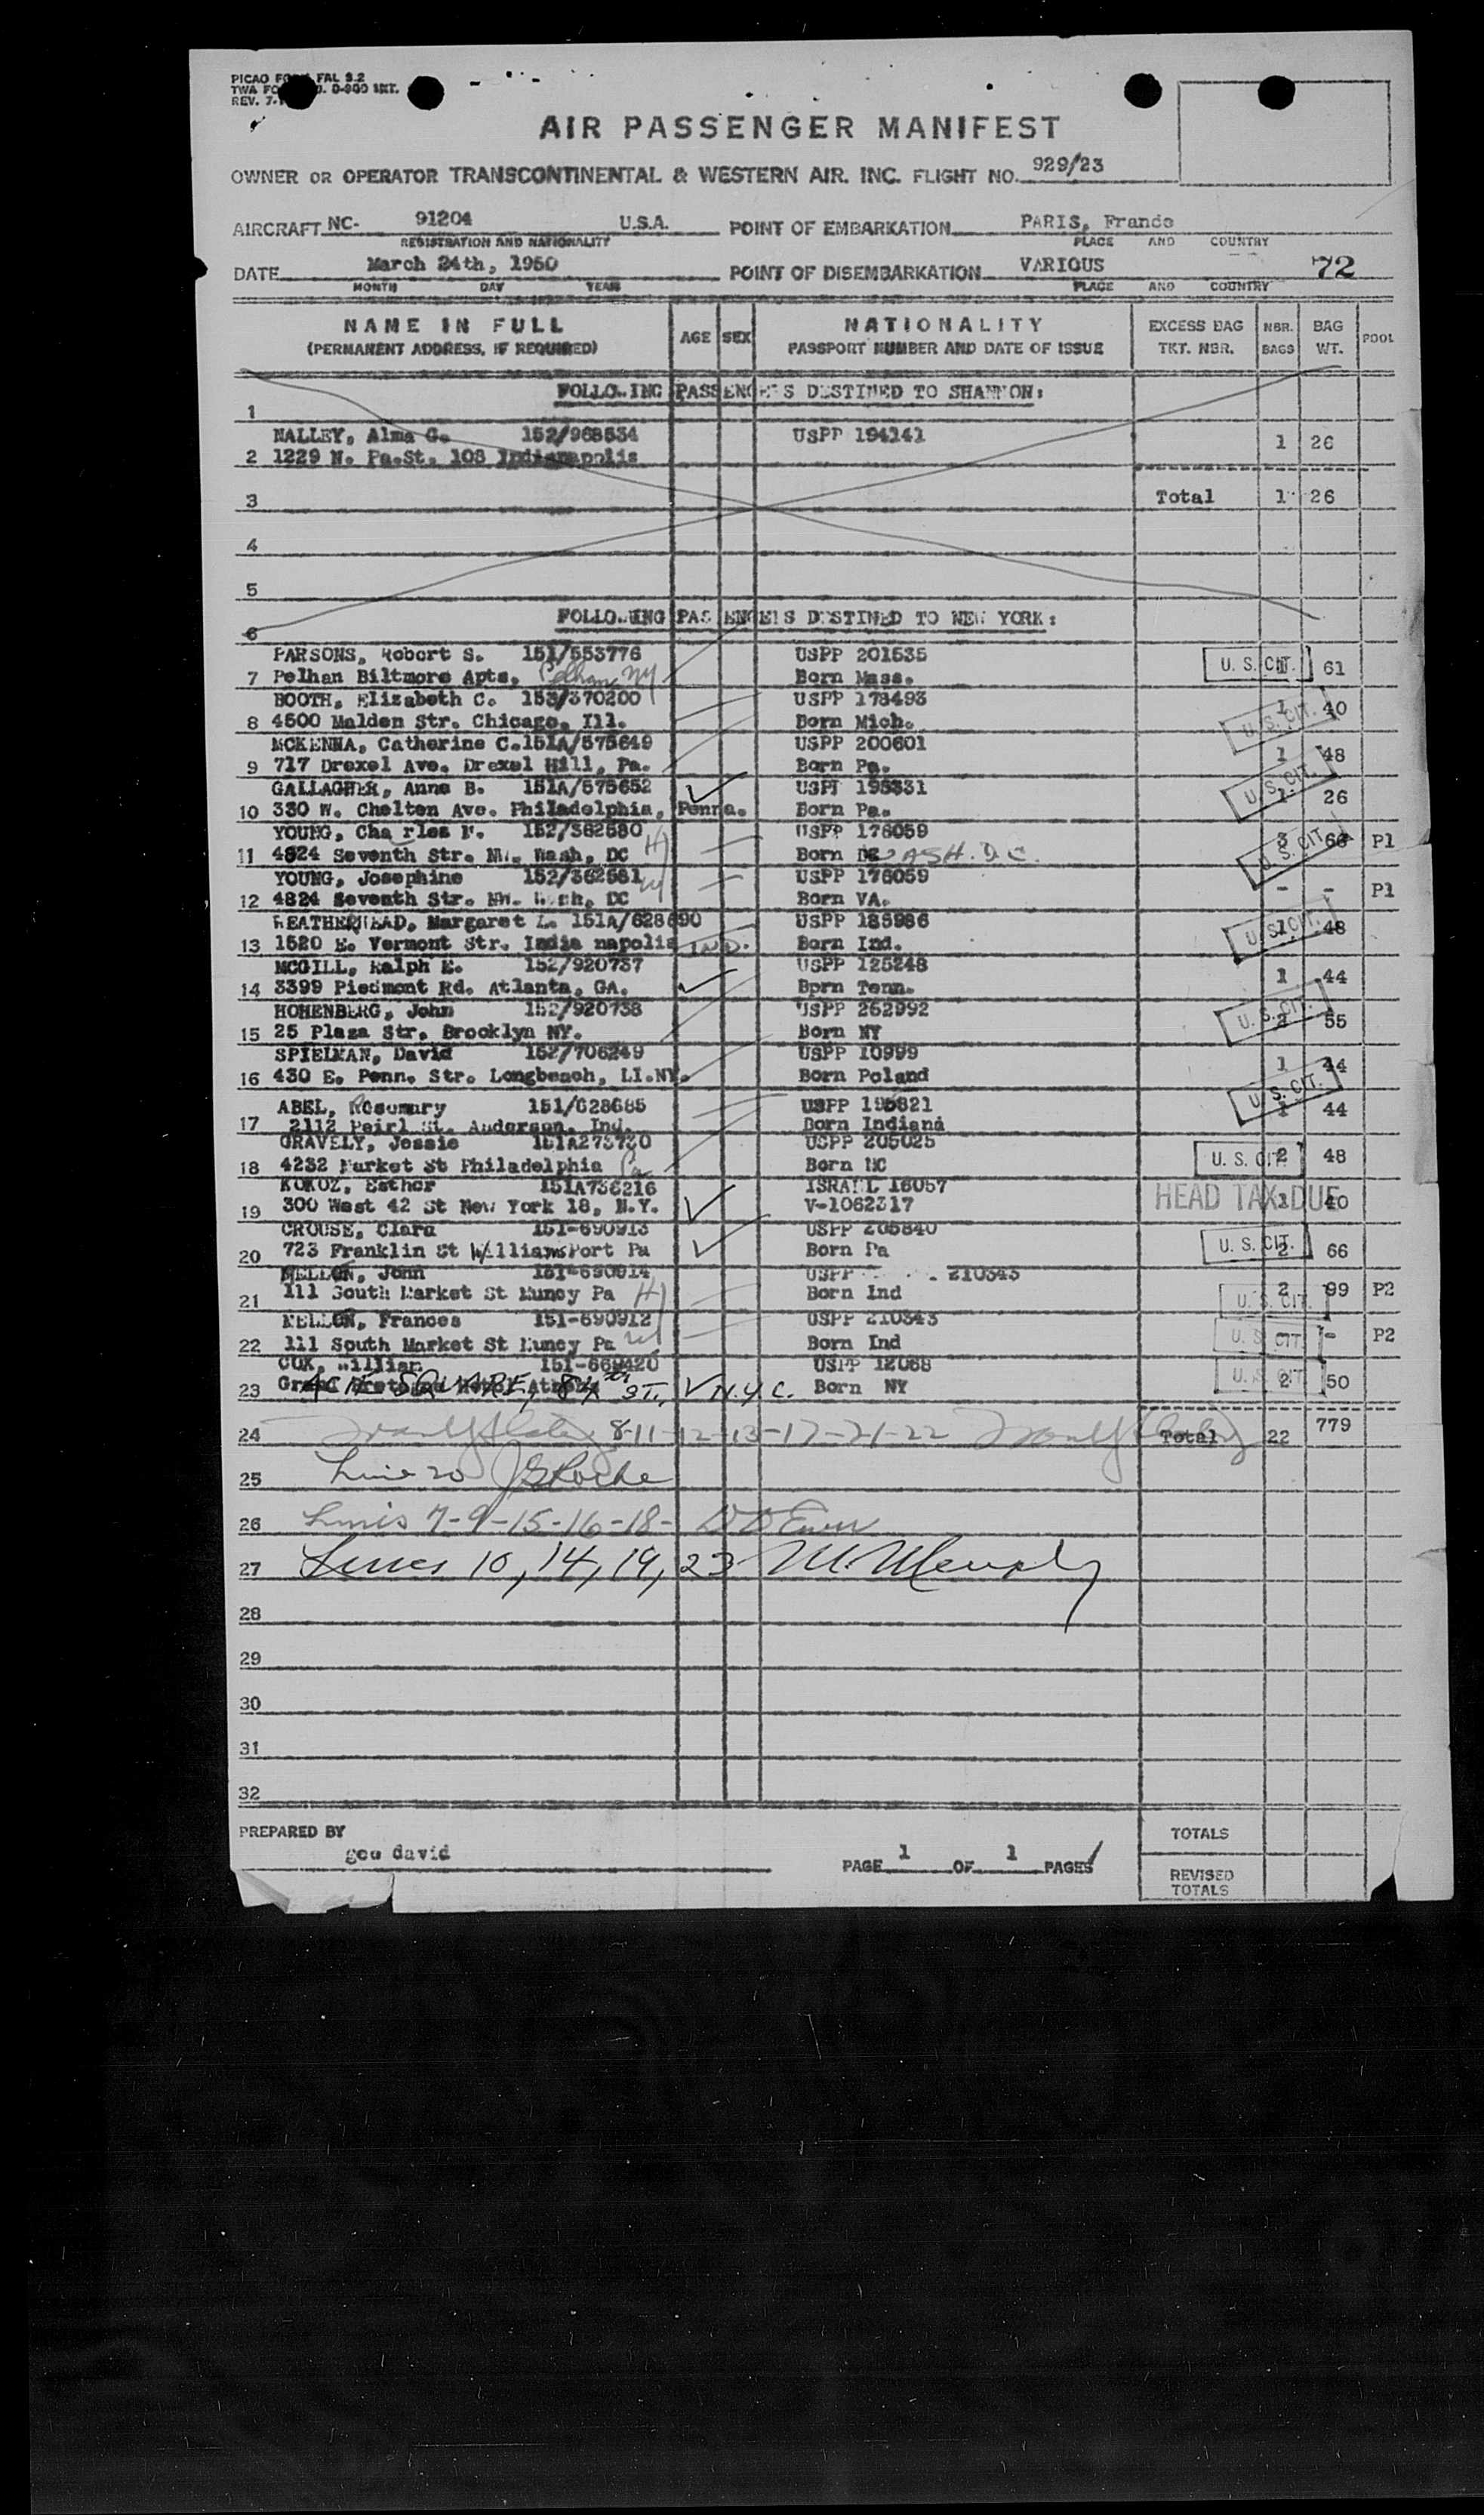 PICAO FO FAL S.2
TWA FO . D-900 INT.
REV. 7-
AIR PASSENGER MANIFEST
OWNER OR OPERATOR TRANSCONTINENTAL & WESTERN AIR. INC. FLIGHT NO. 929/23
AIRCRAFT NC- 91204 U.S.A. POINT OF EMBARKATION PARIS, France
REGISTRATION AND NATIONALITY PLACE AND COUNTRY
DATE March 24th, 1950 POINT OF DISEMBARKATION VARIOUS 72
MONTH DAY YEAR PLACE AND COUNTRY
NAME IN FULL AGE SEX NATIONALITY EXCESS BAG NBR. BAG POOL
(PERMANENT ADDRESS, IF REQUIRED) PASSPORT NUMBER AND DATE OF ISSUE TKT. NBR. BAGS WT.
FOLLOWING PASSENGERS DESTINED TO SHANNON:
1
NALLEY, Alma G. 152/968534 USPP 194141 1 26
2 1229 N. Pa.St. 108 Indianapolis
3 Total 1 26
4
5
FOLLOWING PASSENGERS DESTINED TO NEW YORK:
6
PARSONS, Robert S. 151/553776 USPP 201535 U. S. CIT. 61
7 Pelhan Biltmore Apts, Pelham NY Born Mass.
BOOTH, Elizabeth C. 153/370200 USPP 178493 1 40
8 4500 Malden Str. Chicago, Ill. Born Mich. U. S. CIT.
MCKENNA, Catherine C.151A/575649 USPP 200601 1 48
9 717 Drexel Ave. Drexel Hill, Pa. Born Pa.
GALLAGHER, Anne B. 151A/575652 USPP 195331 U. S. CIT. 1 26
10 330 W. Chelten Ave. Philadelphia, Penna. Born Pa.
YOUNG, Cha rles F. 152/362580 H USPP 176059 3 66 P1
11 4824 Seventh Str. NW. Wash, DC Born WASH. D.C. U. S. CIT.
YOUNG, Josephine 152/362581 W USPP 176059 - - P1
12 4824 Seventh Str. NW. Wash, DC Born VA.
WEATHERHEAD, Margaret L. 151A/628690 USPP 185986 U. S. CIT. 1 48
13 1520 E. Vermont Str. India napolis IND. Born Ind.
MCGILL, Ralph E. 152/920737 USPP 125248 1 44
14 3399 Piedmont Rd. Atlanta, GA. Bprn Tenn.
HOHENBERG, John 152/920738 USPP 262992 U. S. CIT. 2 55
15 25 Plaza Str. Brooklyn NY. Born NY
SPIELMAN, David 152/706249 USPP 10999 1 44
16 430 E. Penn. Str. Longbeach, LI.NY. Born Poland
ABEL, Rosemary 151/628685 USPP 195821 U. S. CIT. 1 44
17 2112 Peirl St. Anderson, Ind. Born Indiana
GRAVELY, Jessie 151A273730 USPP 205025 U. S. CIT. 2 48
18 4232 Market St Philadelphia Pa Born NC
KOKOZ, Esther 151A736216 ISRAEL 16057 HEAD TAX DUE 1 40
19 300 West 42 St New York 18, N.Y. V-1062317
CROUSE, Clara 151-690913 USPP 205840 U. S. CIT. 2 66
20 723 Franklin St WilliamsPort Pa Born Pa
MELLON, John 151-690914 USPP 210343 2 99 P2
21 111 South Market St Muncy Pa H Born Ind U. S. CIT.
MELLON, Frances 151-690912 USPP 210343 U. S. CIT. - - P2
22 111 South Market St Muncy Pa W Born Ind
COX, William 151-669420 USPP 12068 U. S. CIT. 2 50
23 SQUARE, 84th ST., N.Y.C. Born NY
24 8-11-12-13-17-21-22 Total 22 779
25 Line 20 JG Roche
26 Lines 7-9-15-16-18-
27 Lines 10, 14, 19, 23
28
29
30
31
32
PREPARED BY TOTALS
geo david PAGE 1 OF 1 PAGES
REVISED
TOTALS